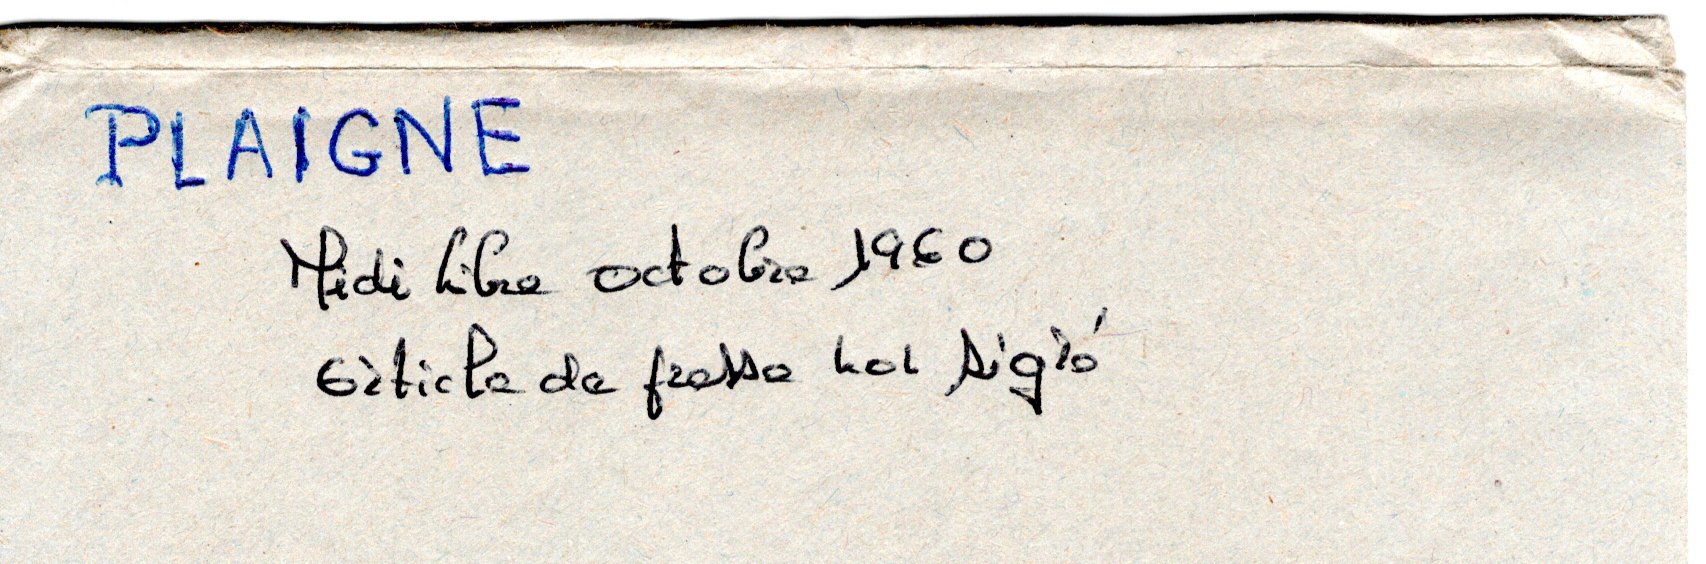 PLAIGNE
Midi libre octobre 1960
article de presse non signé